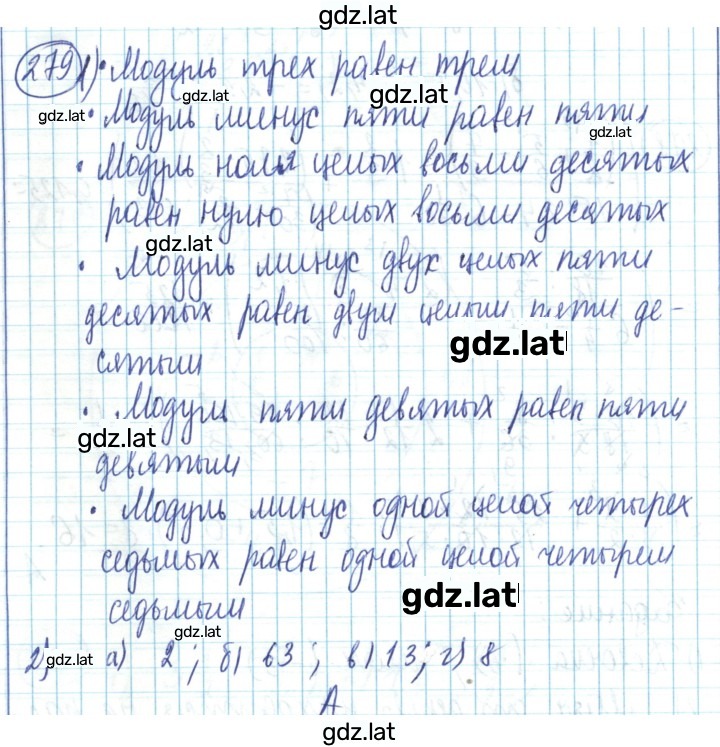 gdz.lat
279 1) • Модуль трех равен трем
gdz.lat gdz.lat
gdz.lat • Модуль минус пяти равен пяти
gdz.lat
• Модуль ноля целых восьми десятых
равен нулю целых восьми десятых
gdz.lat
• Модуль минус двух целых пяти
десятых равен двум целым пяти де-
gdz.lat
сятым
• Модуль пяти девятых равен пяти
gdz.lat
девятым
• Модуль минус одной целой четырех
седьмых равен одной целой четырем
gdz.lat
седьмым
gdz.lat
2) gdz.lat а) 2 ; б) 63 ; в) 13; г) 8
А
gdz.lat